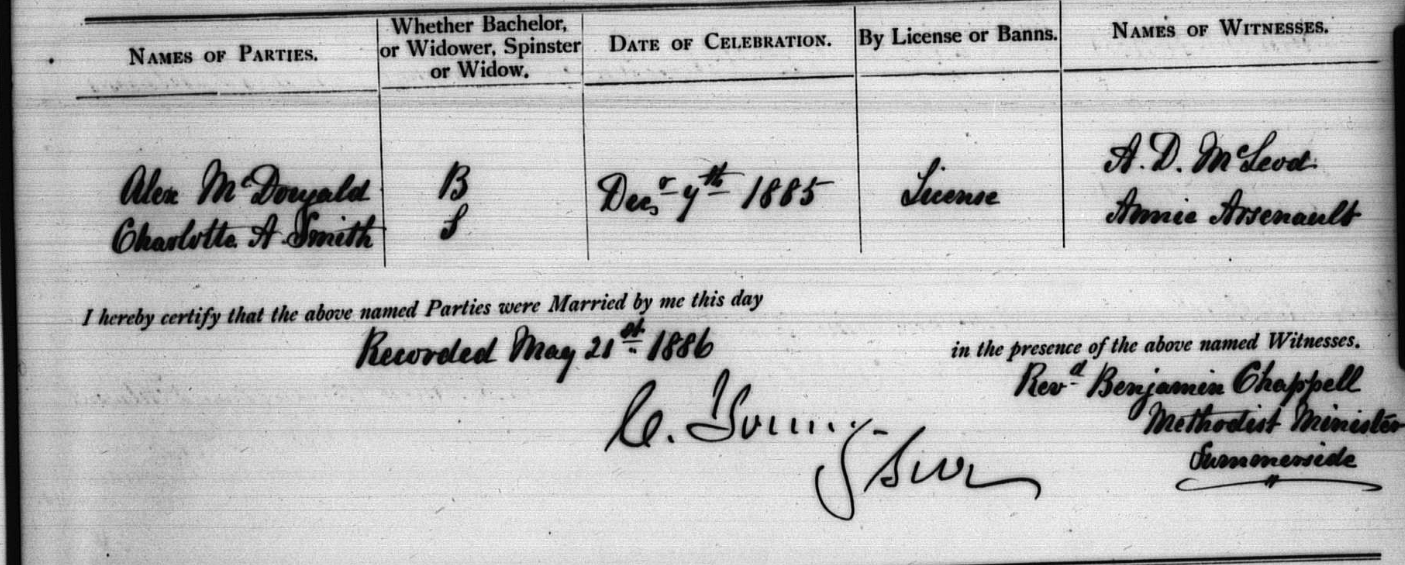 NAMES OF PARTIES.
Whether Bachelor,
or Widower, Spinster
or Widow.
DATE OF CELEBRATION.
By License or Banns.
NAMES OF WITNESSES.
Alex McDonald B Decr 9th 1885 License A. D. McLeod
Charlotte A. Smith S Annie Arsenault
I hereby certify that the above named Parties were Married by me this day
Recorded May 21st 1886
in the presence of the above named Witnesses.
Revd Benjamin Chappell
Methodist Minister
Summerside
C.